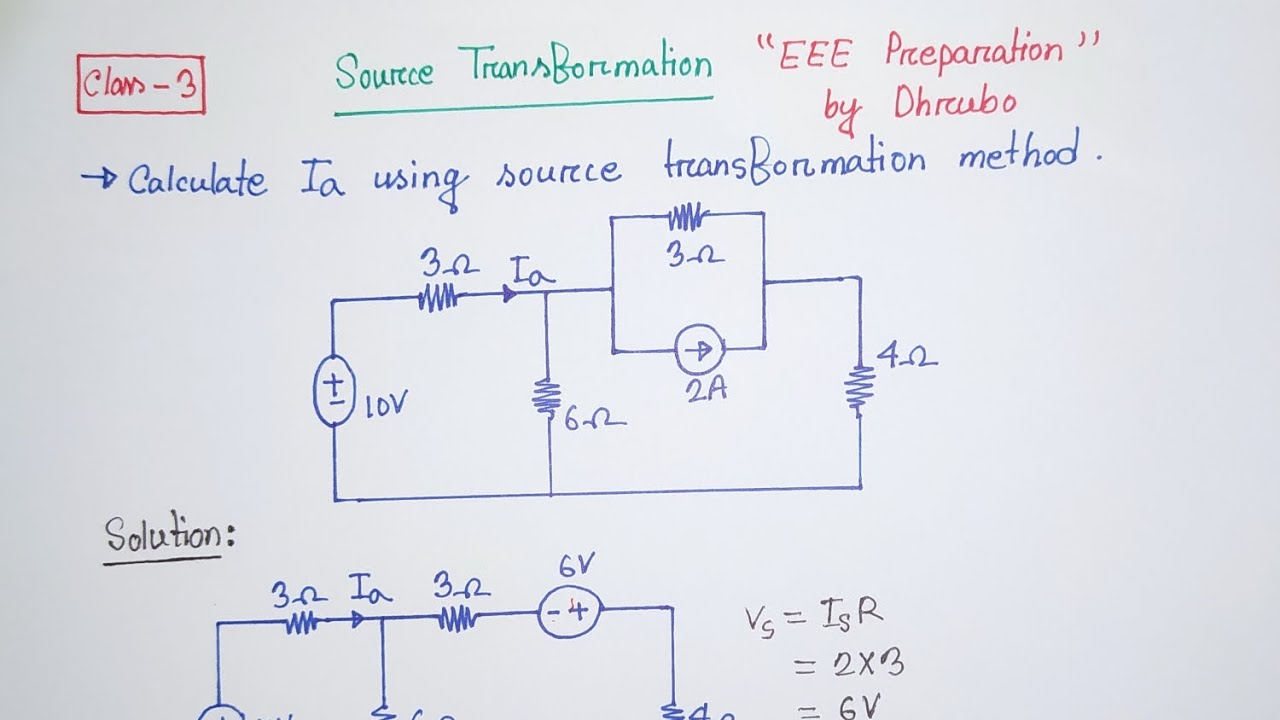 Class-3
Source Transformation
"EEE Preparation"
by Dhrubo
→ Calculate Ia using source transformation method.
3Ω
3Ω
Ia
±
10V
6Ω
2A
4Ω
Solution:
3Ω
Ia
3Ω
6V
- +
Vs = IsR
= 2×3
= 6V